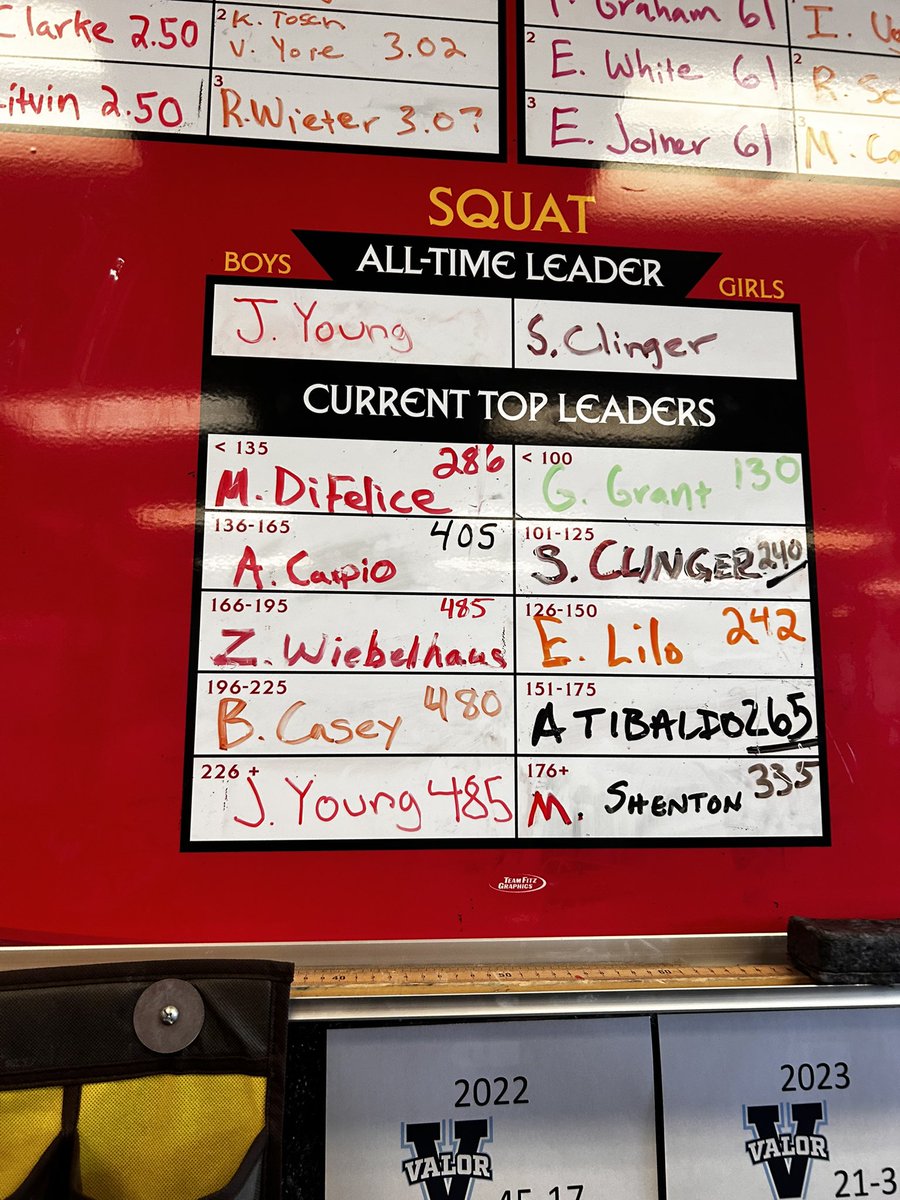 Clarke 2.50
2 K. Tosch
V. Yore 3.02
Litvin 2.50
3 R. Wieter 3.07
Graham 61
I.
2 E. White 61
2 R.
3 E. Joiner 61
3 M.
SQUAT
BOYS
ALL-TIME LEADER
GIRLS
J. Young
S. Clinger
CURRENT TOP LEADERS
< 135 286
M. DiFelice
< 100 130
G. Grant
136-165 405
A. Carpio
101-125
S. CLINGER 240
166-195 485
Z. Wiebelhaus
126-150 242
E. Lilo
196-225 480
B. Casey
151-175
A TIBALDO 265
226 +
J. Young 485
176+ 335
M. SHENTON
TEAM FITZ
GRAPHICS
40 50 60
2022
V
VALOR
45-17
2023
V
VALOR
21-3